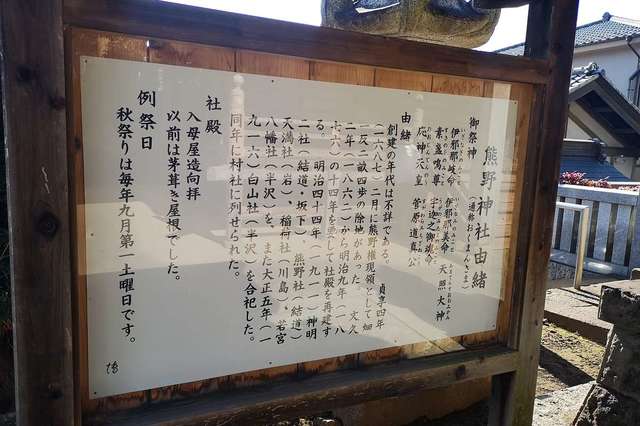 熊野神社由緒
(通称おくまんさま)
御祭神
伊邪那岐命 伊邪那美命 天照大神
素盞嗚尊 宇迦之御魂命
応神天皇 菅原道真公
由緒
創建の年代は不詳である。 貞享四年
(一六八七)二月に熊野権現領として畑
一反二畝四歩の除地があった。文久
二年(一八六二)から明治九年(一八
七六)の十四年を要して社殿を再建す
る。 明治四十四年(一九一一)神明
二社(結道、坂下)、熊野社(結道)
天満社(岩)、稲荷社(川島)、若宮
八幡社(半沢)を、また大正五年(一
九一六)白山社(半沢)を合祀した。
同年に村社に列せられた。
社殿
入母屋造向拝
以前は茅葺き屋根でした。
例祭日
秋祭りは毎年九月第一土曜日です。